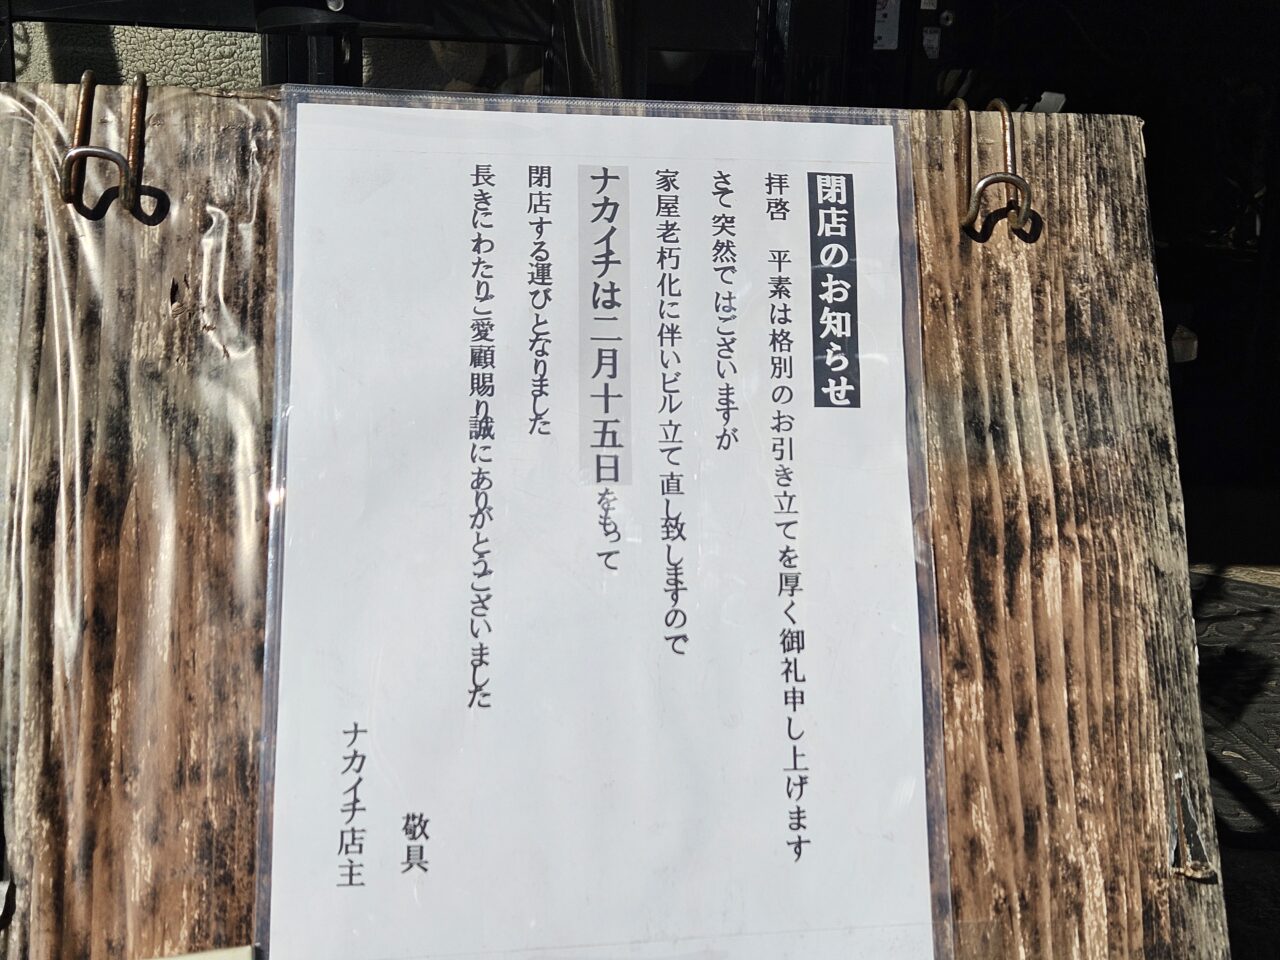 閉店のお知らせ
拝啓　平素は格別のお引き立てを厚く御礼申し上げます
さて突然ではございますが
家屋老朽化に伴いビル立て直し致しますので
ナカイチは二月十五日をもって
閉店する運びとなりました
長きにわたりご愛顧賜り誠にありがとうございました
敬具
ナカイチ店主